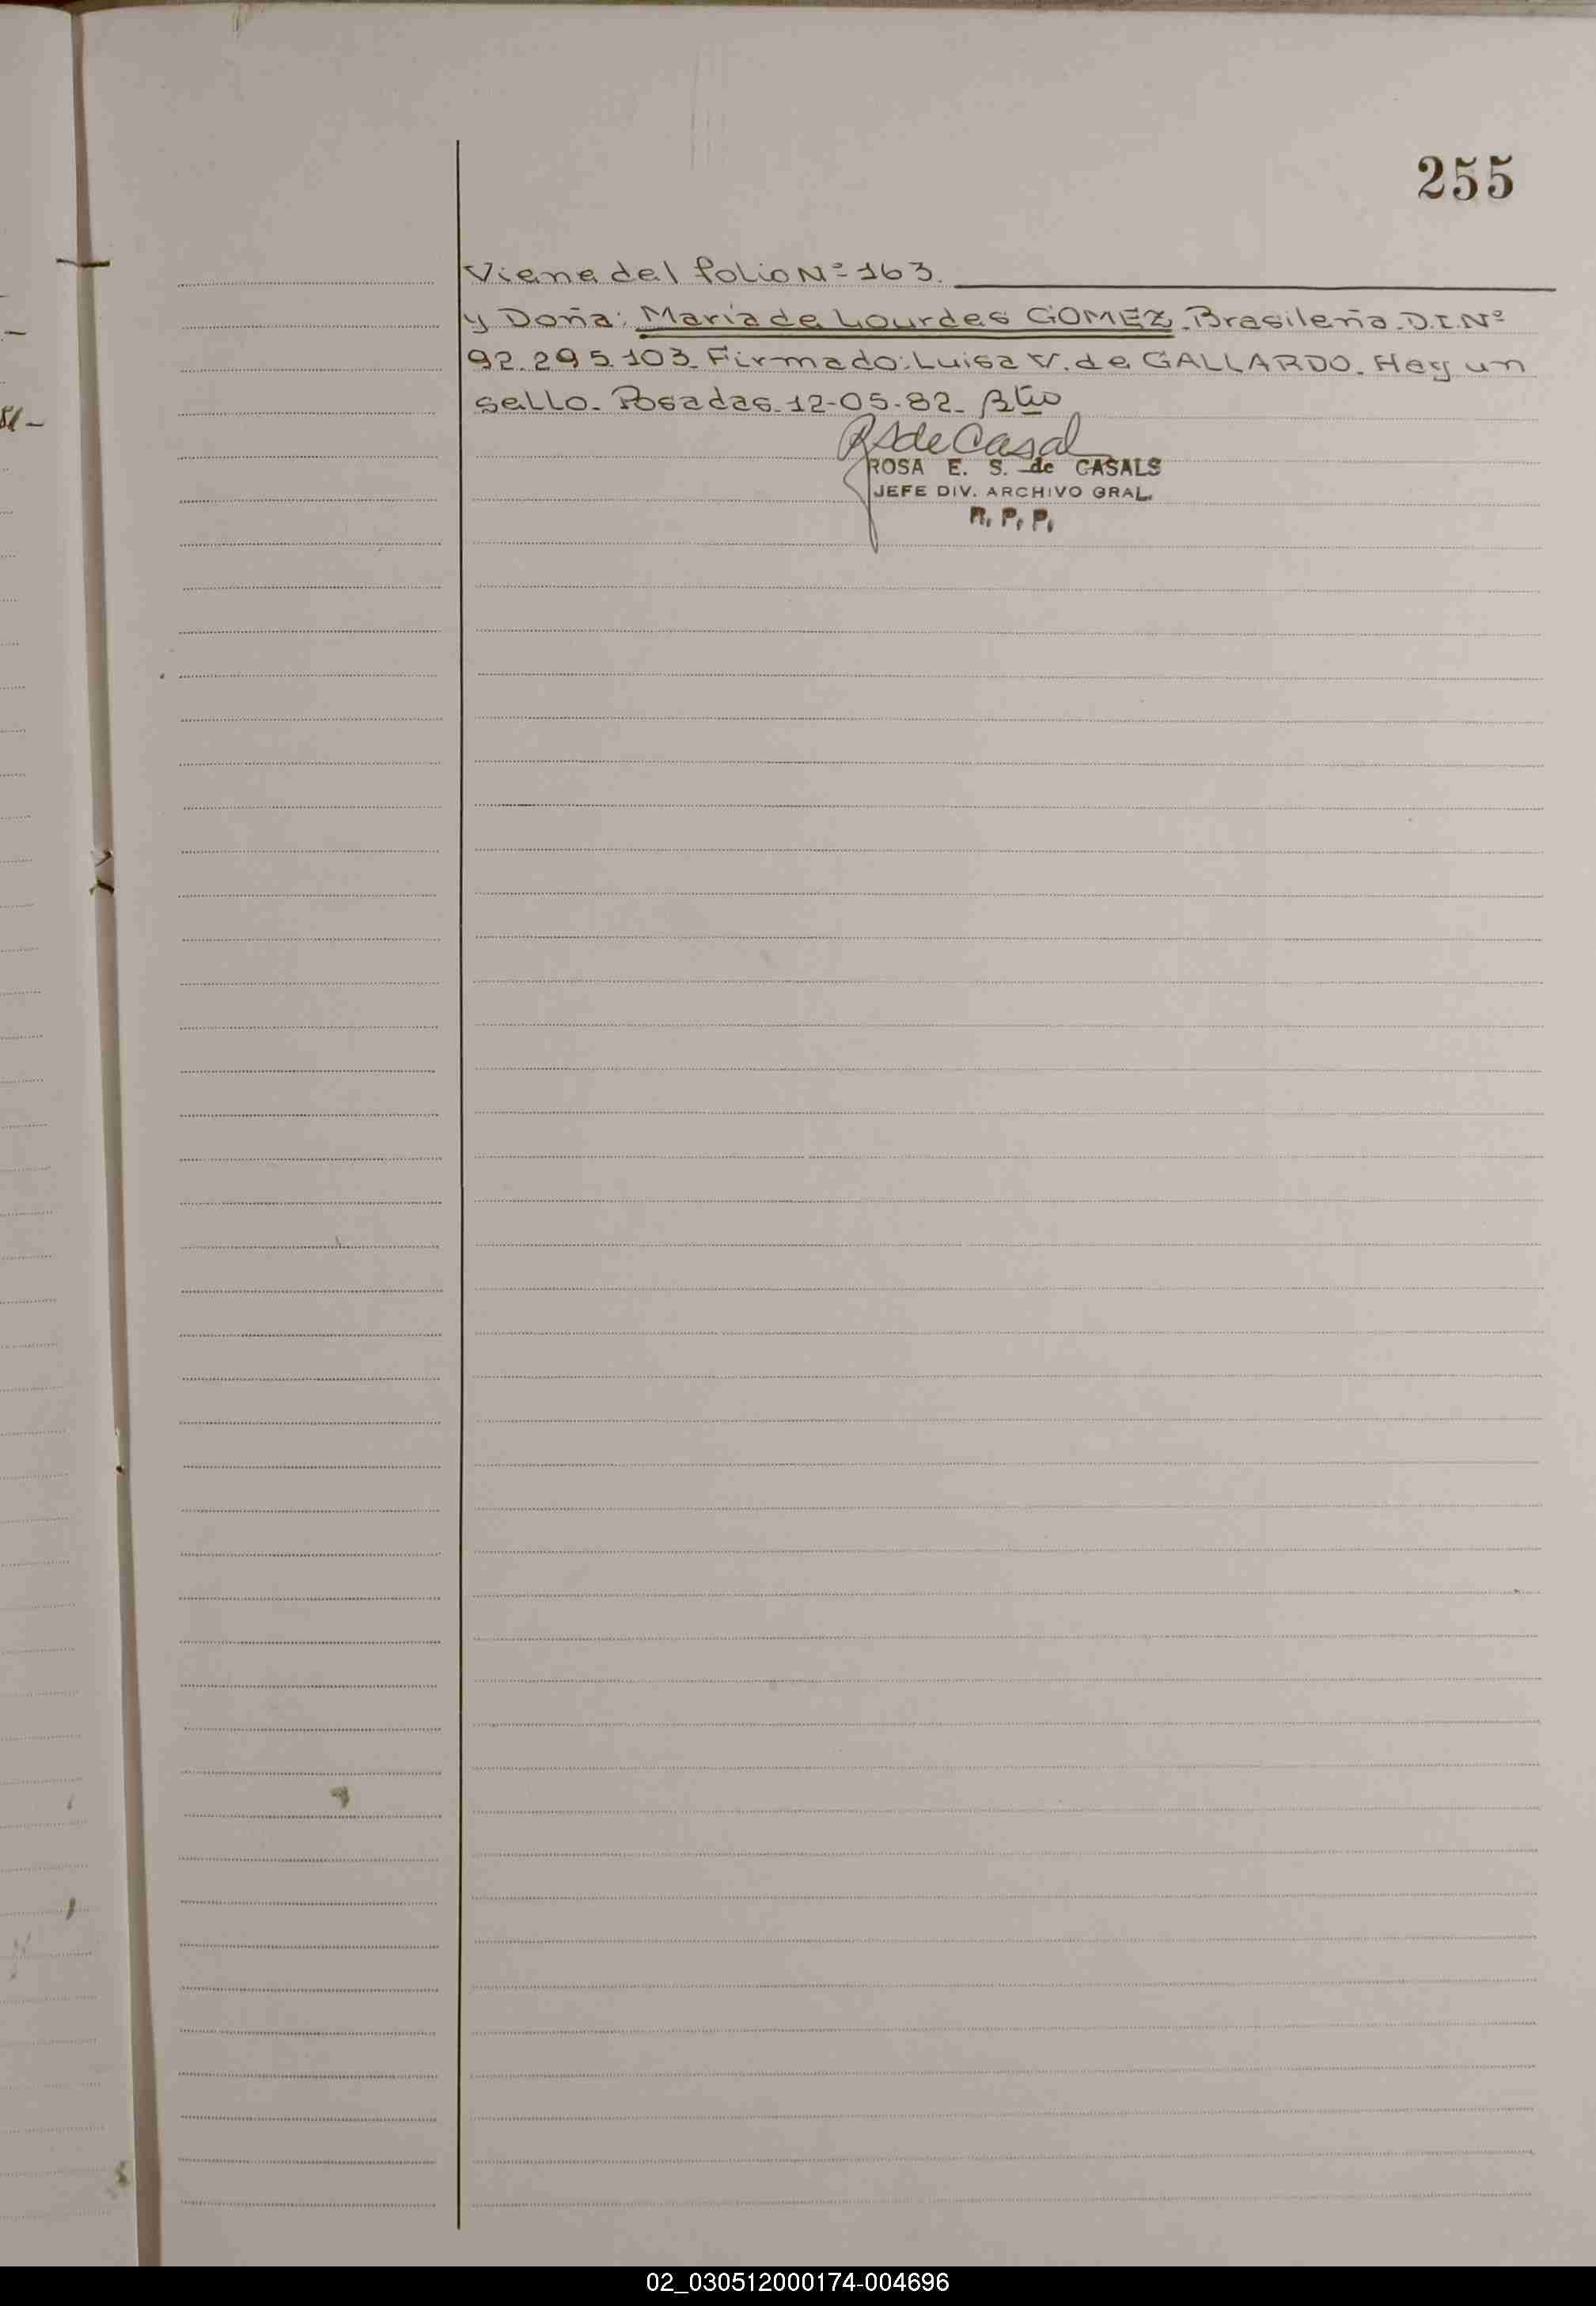 255
Viene del folio Nº 163.
y Doña: Maria de Lourdes GOMEZ. Brasileña. D.I. Nº
92.295.103. Firmado: Luisa V. de GALLARDO. Hay un
sello. Posadas. 12-05-82.
RSdeCasal
ROSA E. S. de CASALS
JEFE DIV. ARCHIVO GRAL.
R. P. P.
02_030512000174-004696